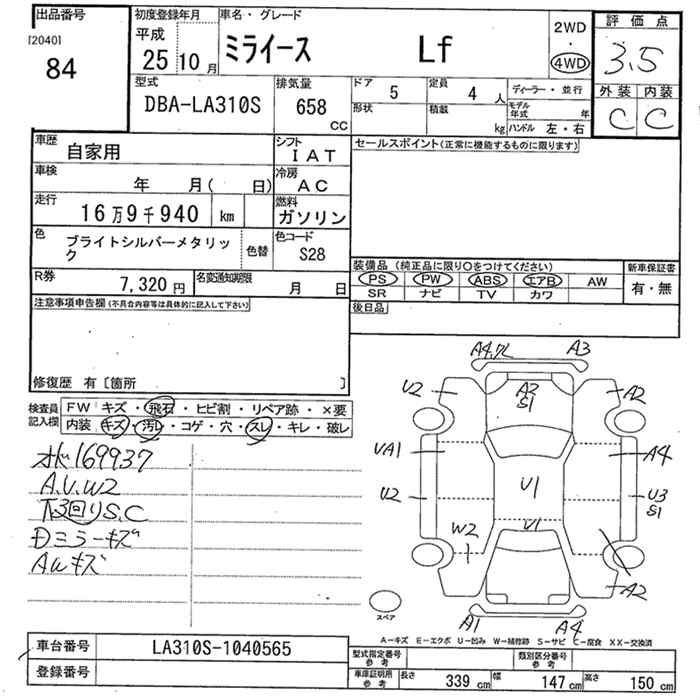 出品番号
[2040]
84
初度登録年月
平成
25 10 月
車名・グレード
ミライース Lf
2WD
・
4WD
評価点
3.5
外装 内装
C C
型式
DBA-LA310S
排気量
658
CC
ドア
5
定員
4 人
形状
積載
kg
ディーラー・並行
モデル年式 年
ハンドル 左・右
車歴
自家用
シフト
IAT
車検
年 月( 日)
冷房
AC
走行
16万9千940 km
燃料
ガソリン
色
ブライトシルバーメタリック
色替
色コード
S28
R券
7,320 円
名変通知期限
月 日
セールスポイント(正常に機能するものに限ります)
装備品 (純正品に限り○をつけてください)
PS PW ABS エアB AW
SR ナビ TV カワ
新車保証書
有・無
後日品
注意事項申告欄(不具合内容等は具体的に記入して下さい)
修復歴 有 [箇所 ]
検査員記入欄
FW キズ・飛石・ヒビ割・リペア跡・×要
内装 キズ・汚レ・コゲ・穴・スレ・キレ・破レ
メk169937
A.U.W2
下3回りS.C
Dミラーキズ
Awキズ
A4.ワレ
A3
U2
A2
S1
A2
UA1
A4
U2
U1
U3
S1
W2
U1
A2
A1
A4
スペア
A-キズ E-エクボ U-凹み W-補修跡 S-サビ C-腐食 XX-交換済
車台番号
LA310S-1040565
登録番号
型式指定番号
参考
類別区分番号
参考
車庫証明用
参考
長さ 339 cm
幅 147 cm
高さ 150 cm